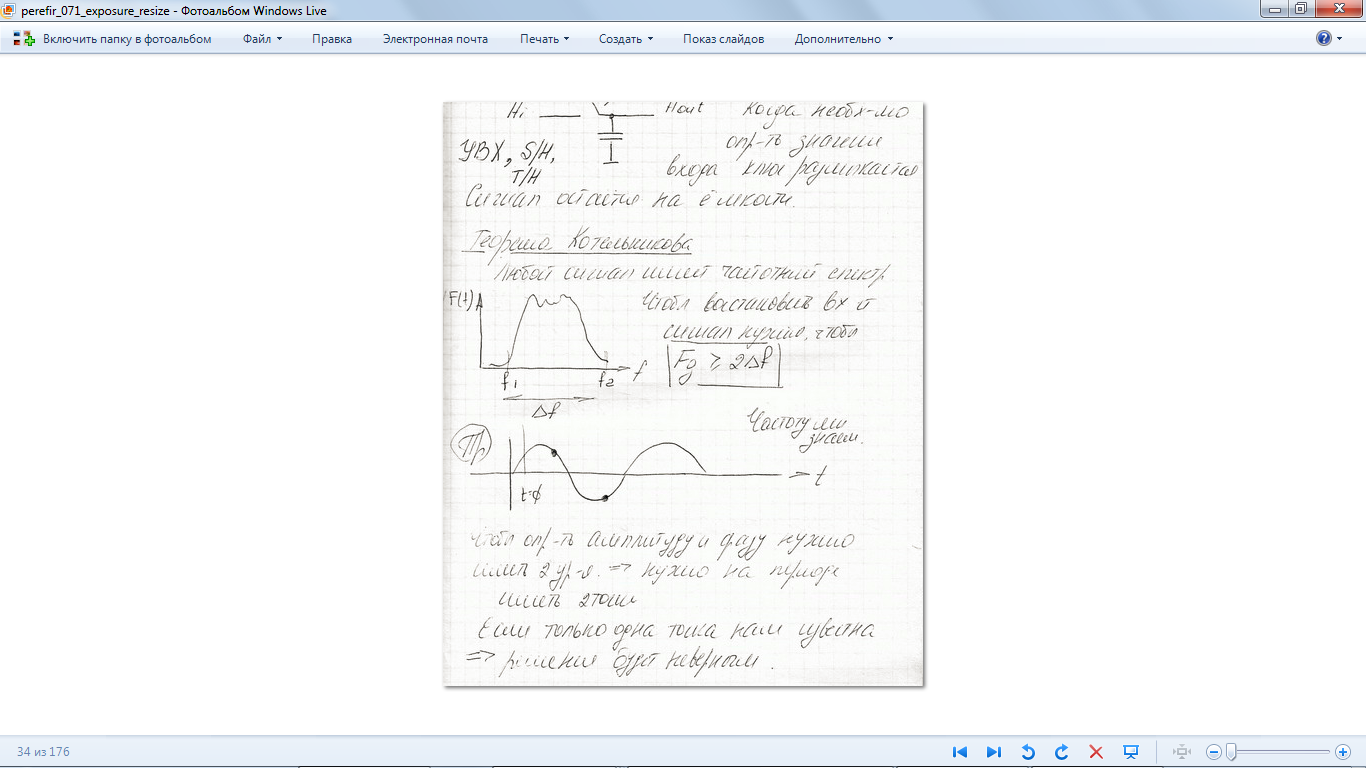 perefir_071_exposure_resize - Фотоальбом Windows Live
Включить папку в фотоальбом Файл Правка Электронная почта Печать Создать Показ слайдов Дополнительно
Hi Hout Когда необх-мо
опр-ть значение
УВХ, S/H, входа ключ размыкается
T/H
Сигнал остаётся на ёмкости.
Теорема Котельникова
Любой сигнал имеет частотный спектр
F(t) Чтобы востановить вх й
сигнал нужно, чтобы
Fg ≥ 2Δf
f1 f2 f
Δf
Частоту мы
знаем.
Пр
t
t=ϕ
Чтобы опр-ть амплитуду и фазу нужно
иметь 2 ур-я. => нужно на периоде
иметь 2 точки
Если только одна точка нам известна
=> решение будет неверным.
34 из 176